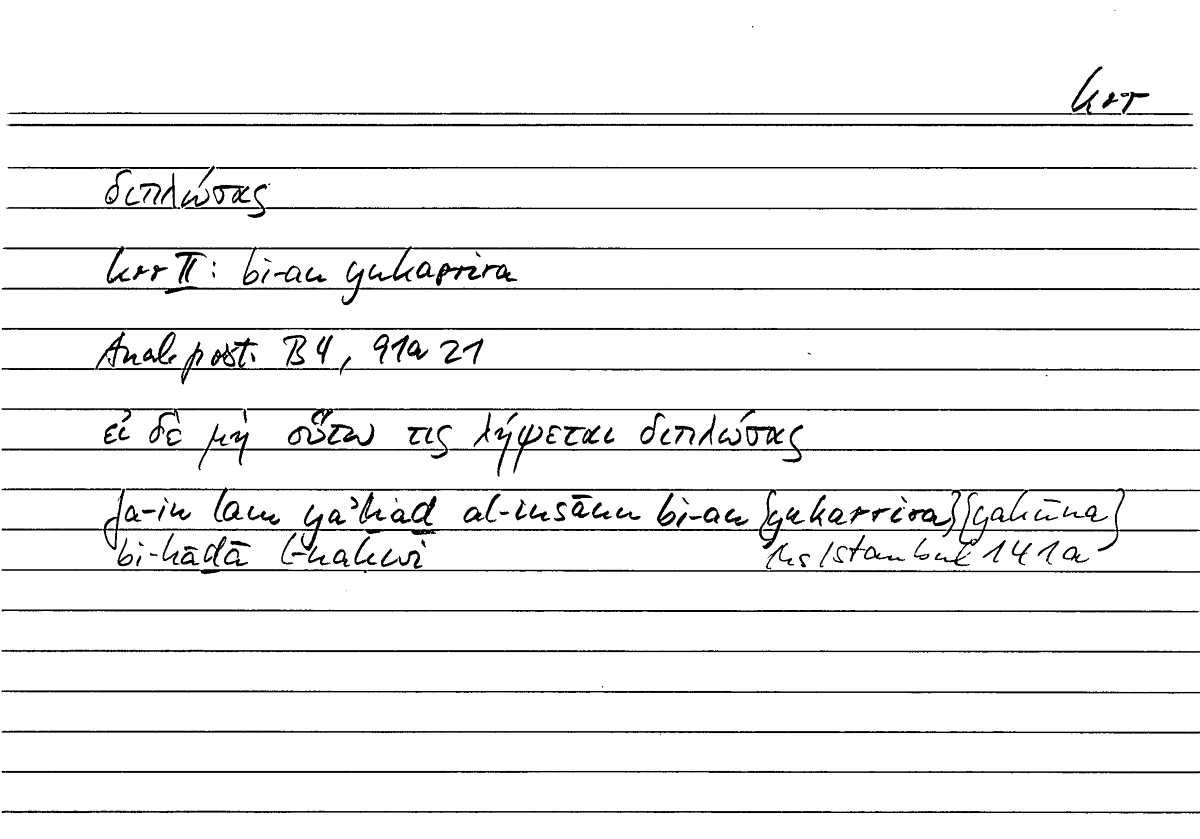 krr
διπλώσας
krr II: bi-an yukarrira
Anal. post. B 4, 91a 21
εἰ δὲ μὴ οὕτω τις λήψεται διπλώσας
fa-in lam ya’ḫaḏ al-insānu bi-an {yukarrira} {yakūna}
bi-hāḏā l-naḥwi Hs Istanbul 141a